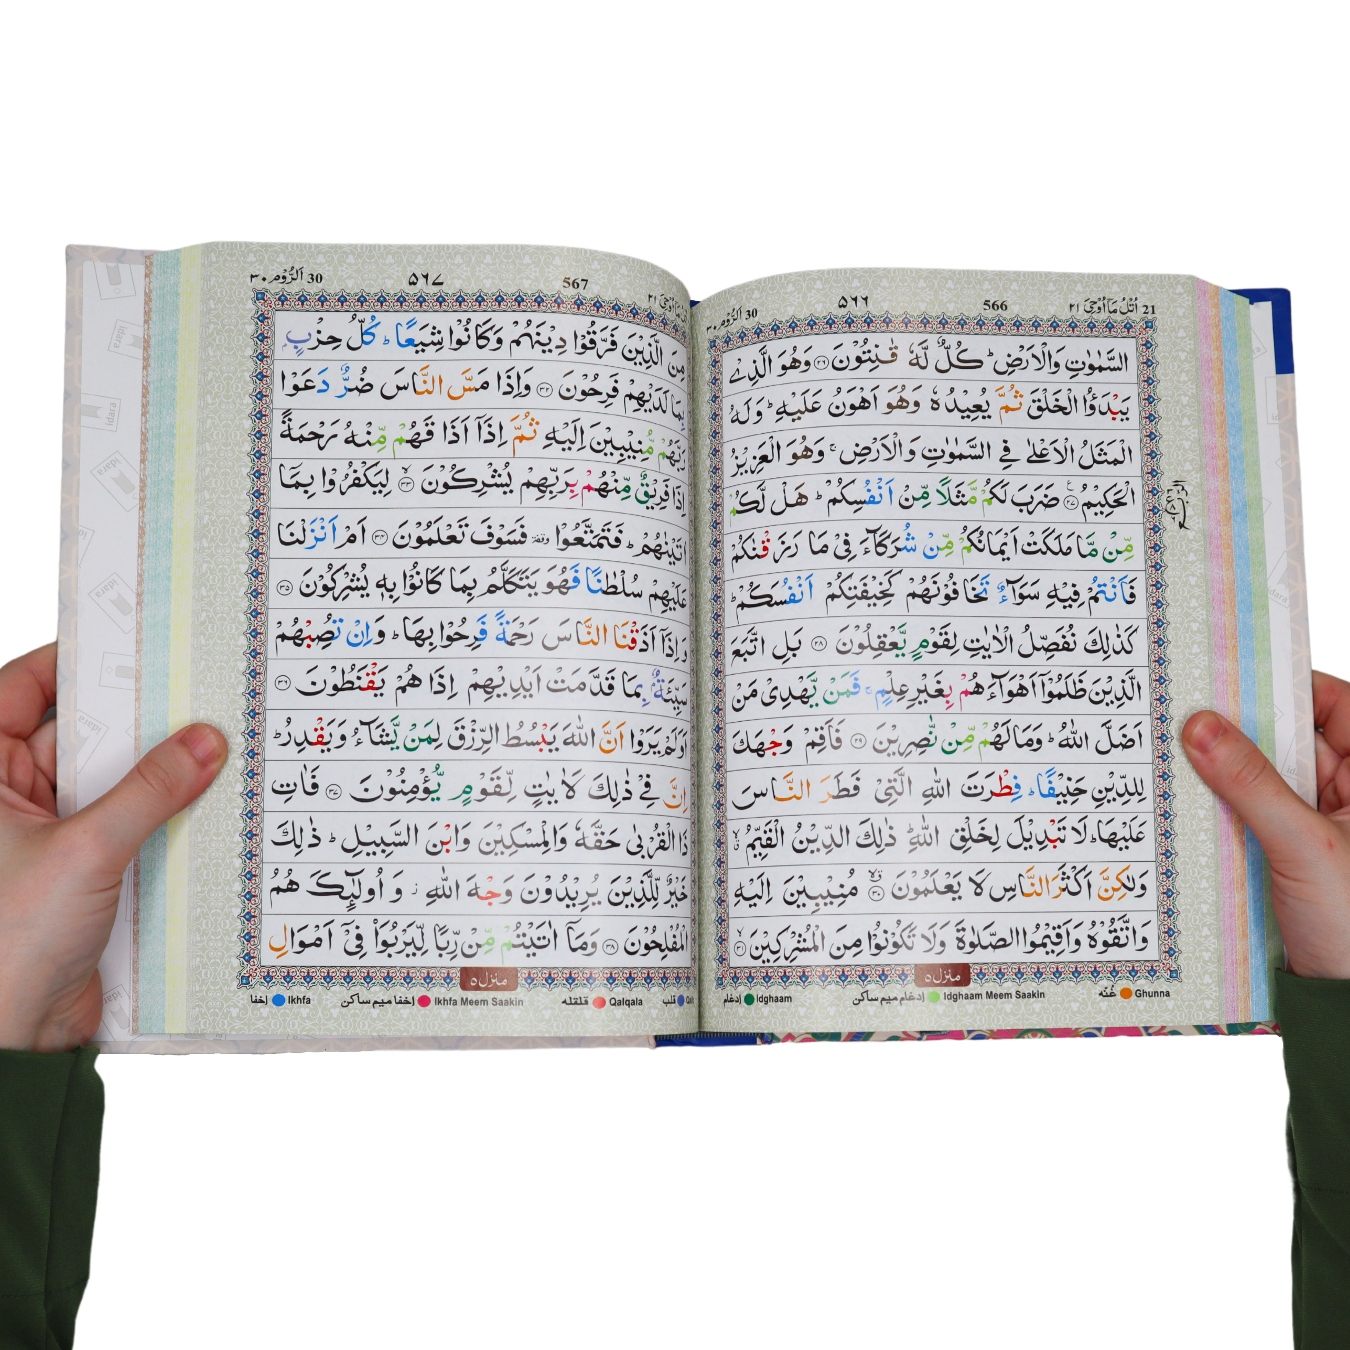 21 اُتْلُ مَآ اُوْحِیَ ۲۱
566
۵۶۶
30 اَلرُّوْم ۳۰
السَّمٰوٰتِ وَالْاَرْضِ ؕ كُلٌّ لَّهٗ قٰنِتُوْنَ ﴿۲۶﴾ وَهُوَ الَّذِىْ
يَبْدَؤُا الْخَلْقَ ثُمَّ يُعِيْدُهٗ وَهُوَ اَهْوَنُ عَلَيْهِ ؕ وَلَهُ
الْمَثَلُ الْاَعْلٰى فِى السَّمٰوٰتِ وَالْاَرْضِ ۚ وَهُوَ الْعَزِيْزُ
الْحَكِيْمُ ﴿۲۷﴾ ضَرَبَ لَكُمْ مَّثَلًا مِّنْ اَنْفُسِكُمْ ؕ هَلْ لَّكُمْ
مِّنْ مَّا مَلَكَتْ اَيْمَانُكُمْ مِّنْ شُرَكَآءَ فِىْ مَا رَزَقْنٰكُمْ
فَاَنْتُمْ فِيْهِ سَوَآءٌ تَخَافُوْنَهُمْ كَخِيْفَتِكُمْ اَنْفُسَكُمْ ؕ
كَذٰلِكَ نُفَصِّلُ الْاٰيٰتِ لِقَوْمٍ يَّعْقِلُوْنَ ﴿۲۸﴾ بَلِ اتَّبَعَ
الَّذِيْنَ ظَلَمُوْۤا اَهْوَآءَهُمْ بِغَيْرِ عِلْمٍ ۚ فَمَنْ يَّهْدِىْ مَنْ
اَضَلَّ اللّٰهُ ؕ وَمَا لَهُمْ مِّنْ نّٰصِرِيْنَ ﴿۲۹﴾ فَاَقِمْ وَجْهَكَ
لِلدِّيْنِ حَنِيْفًا ؕ فِطْرَتَ اللّٰهِ الَّتِىْ فَطَرَ النَّاسَ
عَلَيْهَا ؕ لَا تَبْدِيْلَ لِخَلْقِ اللّٰهِ ؕ ذٰلِكَ الدِّيْنُ الْقَيِّمُ
وَلٰكِنَّ اَكْثَرَ النَّاسِ لَا يَعْلَمُوْنَ ﴿۳۰﴾ مُنِيْبِيْنَ اِلَيْهِ
وَاتَّقُوْهُ وَاَقِيْمُوا الصَّلٰوةَ وَلَا تَكُوْنُوْا مِنَ الْمُشْرِكِيْنَ ﴿۳۱﴾
منزل ۵
Ghunna غُنّه
Idghaam Meem Saakin ادغام میم ساکن
Idghaam ادغام
567
۵۶۷
30 اَلرُّوْم ۳۰
مِنَ الَّذِيْنَ فَرَّقُوْا دِيْنَهُمْ وَكَانُوْا شِيَعًا ؕ كُلُّ حِزْبٍۭ
بِمَا لَدَيْهِمْ فَرِحُوْنَ ﴿۳۲﴾ وَاِذَا مَسَّ النَّاسَ ضُرٌّ دَعَوْا
رَبَّهُمْ مُّنِيْبِيْنَ اِلَيْهِ ثُمَّ اِذَاۤ اَذَاقَهُمْ مِّنْهُ رَحْمَةً
اِذَا فَرِيْقٌ مِّنْهُمْ بِرَبِّهِمْ يُشْرِكُوْنَ ﴿۳۳﴾ لِيَكْفُرُوْا بِمَاۤ
اٰتَيْنٰهُمْ ؕ فَتَمَتَّعُوْا وقفه فَسَوْفَ تَعْلَمُوْنَ ﴿۳۴﴾ اَمْ اَنْزَلْنَا
عَلَيْهِمْ سُلْطٰنًا فَهُوَ يَتَكَلَّمُ بِمَا كَانُوْا بِهٖ يُشْرِكُوْنَ ﴿۳۵﴾
وَاِذَاۤ اَذَقْنَا النَّاسَ رَحْمَةً فَرِحُوْا بِهَا ؕ وَاِنْ تُصِبْهُمْ
سَيِّئَةٌۢ بِمَا قَدَّمَتْ اَيْدِيْهِمْ اِذَا هُمْ يَقْنَطُوْنَ ﴿۳۶﴾
اَوَلَمْ يَرَوْا اَنَّ اللّٰهَ يَبْسُطُ الرِّزْقَ لِمَنْ يَّشَآءُ وَيَقْدِرُ ؕ
اِنَّ فِىْ ذٰلِكَ لَاٰيٰتٍ لِّقَوْمٍ يُّؤْمِنُوْنَ ﴿۳۷﴾ فَاٰتِ
ذَا الْقُرْبٰى حَقَّهٗ وَالْمِسْكِيْنَ وَابْنَ السَّبِيْلِ ؕ ذٰلِكَ
خَيْرٌ لِّلَّذِيْنَ يُرِيْدُوْنَ وَجْهَ اللّٰهِ ز وَاُولٰٓئِكَ هُمُ
الْمُفْلِحُوْنَ ﴿۳۸﴾ وَمَاۤ اٰتَيْتُمْ مِّنْ رِّبًا لِّيَرْبُوَا۟ فِىْۤ اَمْوَالِ
منزل ۵
قلب
Qalqala قلقله
Ikhfa Meem Saakin اخفا میم ساکن
Ikhfa اخفا
idara